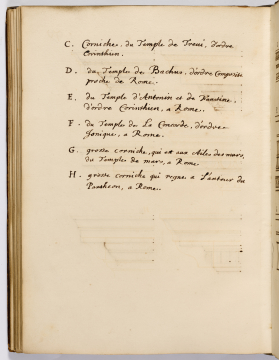 C. Corniche, du Temple de Treui, d'ordre
Corinthien.
D. du Temple de Bachus, d'ordre Composite
proche de Rome.
E. du Temple d'Antonin et de Faustine,
d'ordre Corinthien, a Rome.
F. du Temple de La Concorde, d'ordre
Jonique, a Rome.
G. grosse corniche, qui est aux Ailes des murs,
du Temple de mars, a Rome.
H. grosse corniche qui regne a L'entour du
Pantheon, a Rome.